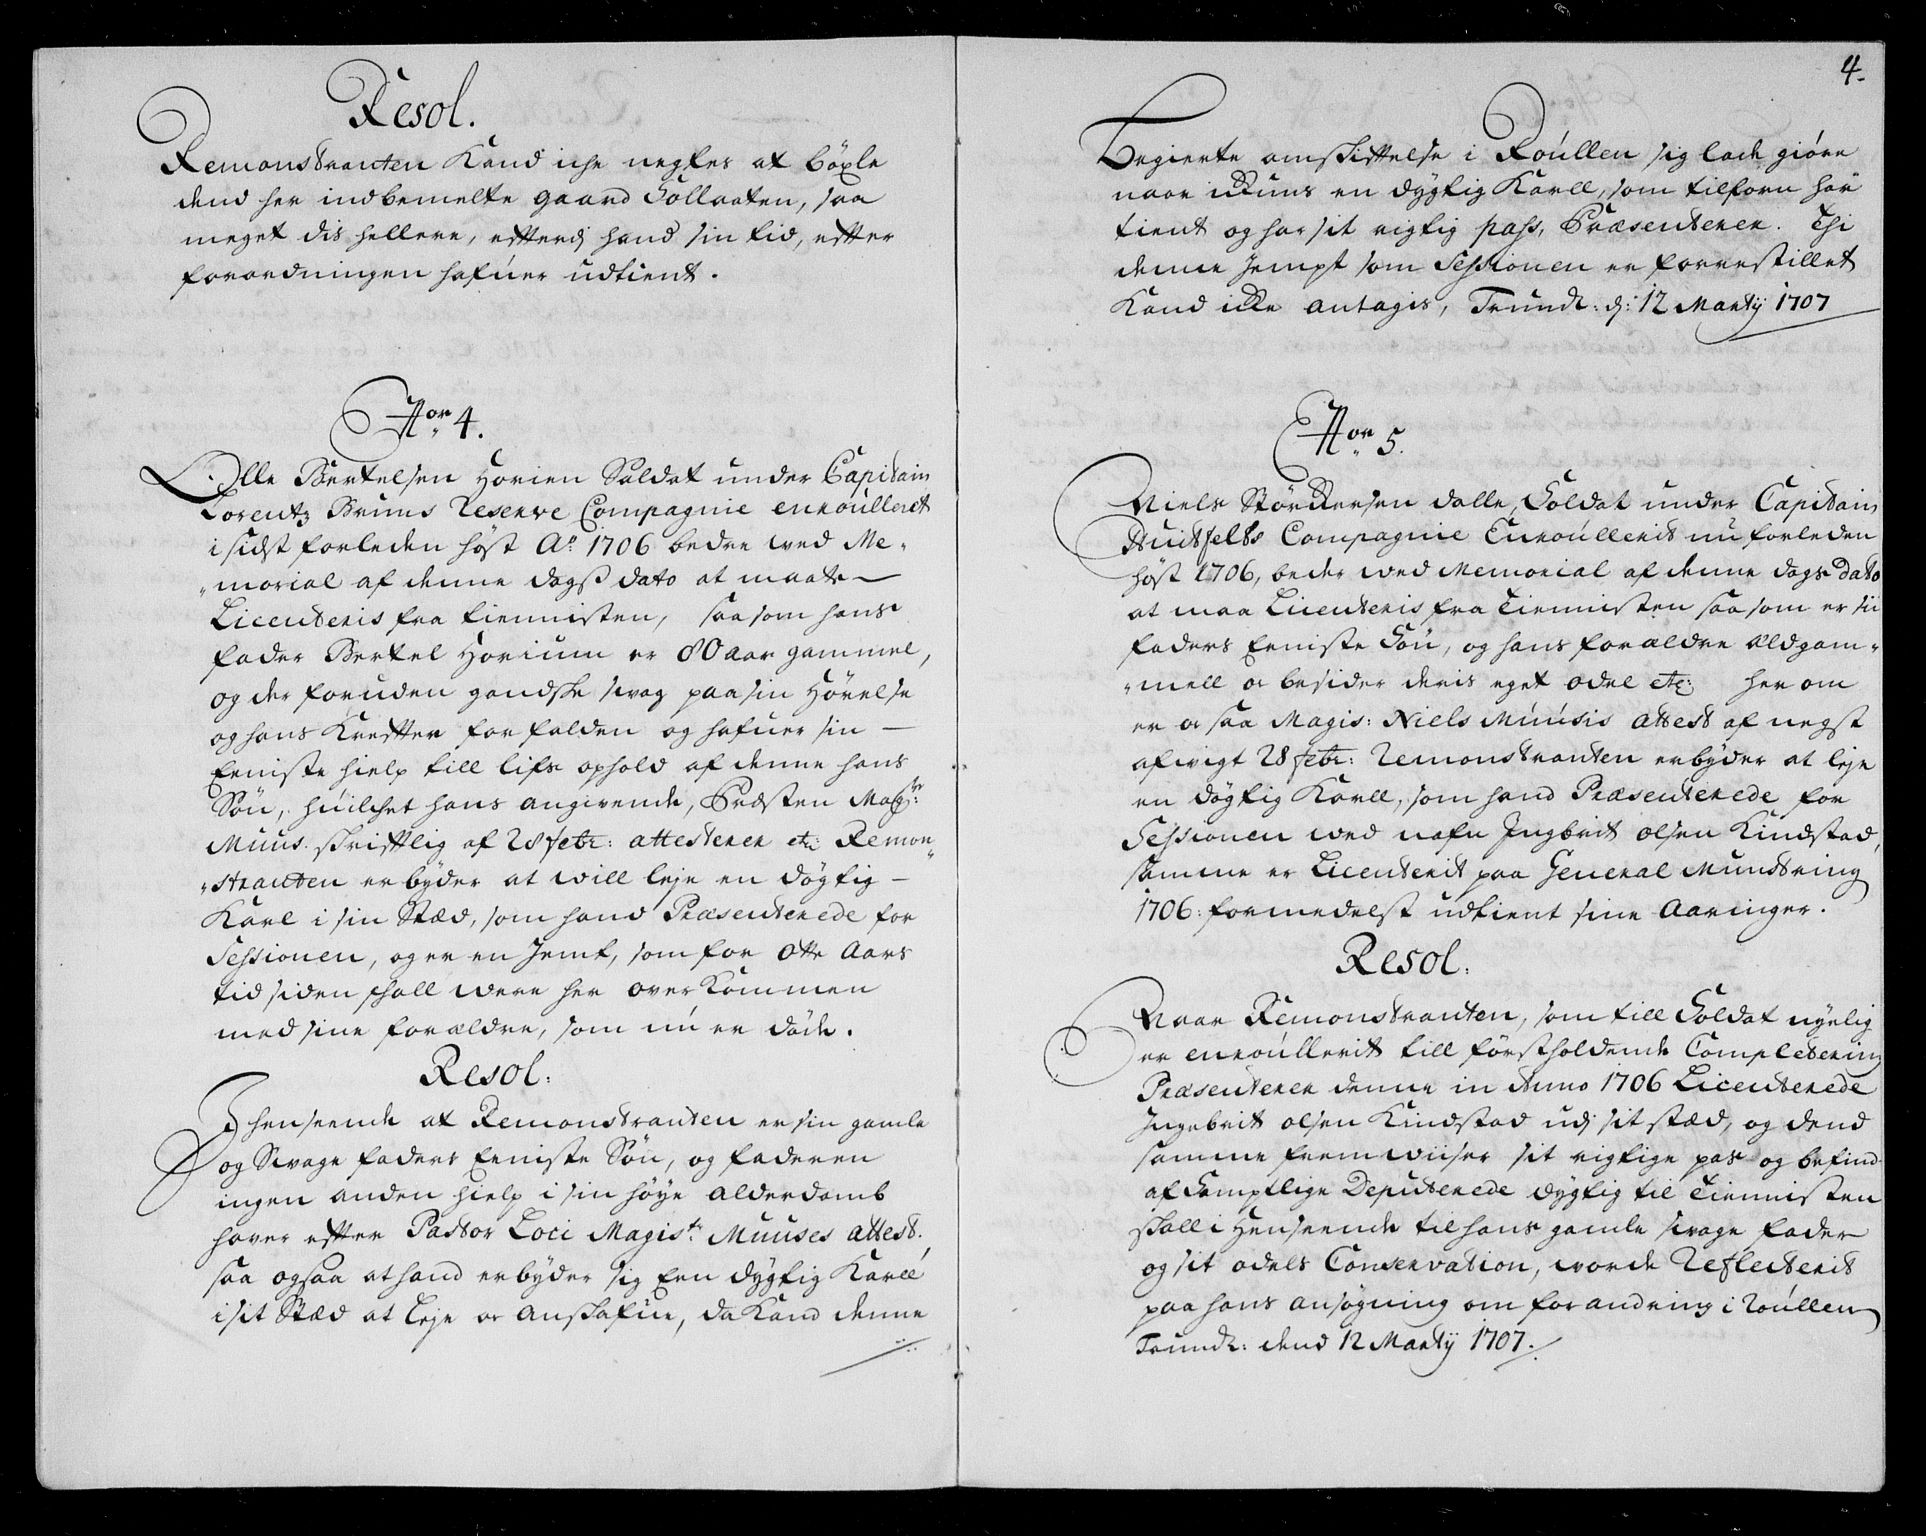 Resol.
Remonstranten Kand iche negtes at böxle
dend her indbemelte gaard Follaaten, saa
meget dis hellere, efterdj hand sin tid, efter
forordningen hafuer udtient.
No 4.
Olle Bertelsen Hovien Soldat under Capitain
Lorentz Bruns Reserve Compagnie enroulleret
i sidst forleden höst Ao 1706 bedre wed Me„
„morial af denne dagss dato at maate
Licenteris fra tiennisten, saasom hans
fader Bertel Hovium er 80 aar gammel,
og der foruden gandske swag paa sin Hörelse
og hans Krefter forfalden og hafuer sin
Eeniste hielp till lifs ophold af denne hans
Sön, huilchet hans angivende, Præsten Magr:
Muus. skriftlig af 28 febr: attesterer etc: Remon„
„stranten erbyder at will leje en dögtig
Karl i sin Stæd, som hand Præsenterede for
Sessionen, og er en Jemt, som for otte Aars
tid siden skall were her over Kommen
med sine forældre, som nu er döde.
Resol:
I henseende at Remonstranten er sin gamle
og Swage faders Eeniste Sön, og faderen
ingen anden hielp i sin höye Alderdomb
haver efter Pastor Loci Magistr Muuses attest.
saa ogsaa at hand erbyder sig Een dygtig Karll
i sit Stæd at Leje og Anskafue, da Kand denne
4.
Begierte omskiftelse i Roullen sig lade giöre
naar ickuns en dygtig Karll, som tilforn har
tient og har sit rigtig pass, Præsenterer. Thi
denne Jempt som Sessionen er forrestillet
Kand icke antagis, Trundh: d: 12 Martij 1707
No 5.
Niels Störckersen dalle, Soldat under Capitain
Huitfelts Compagnie Enroullerit nu forleden
höst 1706, beder wed Memorial af denne dags dato
at maa Licenteris fra Tiennisten saasom er sin
faders Eeniste Sön, og hans forældre ældgam„
„mell og besider deris eget odel etc: her om
er og saa Magis: Niels Muusis attest af negst
afvigt 28 febr: Remonstranten erbyder at leje
en dögtig Karll, som hand Præsenterede for
Sessionen wed nafn Ingbrit olsen Kindstad,
samme er Licenterit paa General Munstring
1706: formedelst udtient sine Aaringer.
Resol:
Naar Remonstranten, som till Soldat nyelig
er enroullerit till förstholdende Completering
Præsenterer denne in Anno 1706 Licenterede
Ingebrit olsen Kindstad udj sit stæd, og dend
samme fremwiiser sit rigtige pas og befind
af Samptlige Deputerede dygtig til Tiennisten
skall i Henseende til hans gamle swage fader
og sit odels Conservation, worde Reflecterit
paa hans ansögning om forandring i Roullen
Trundh: dend 12 Martij 1707.